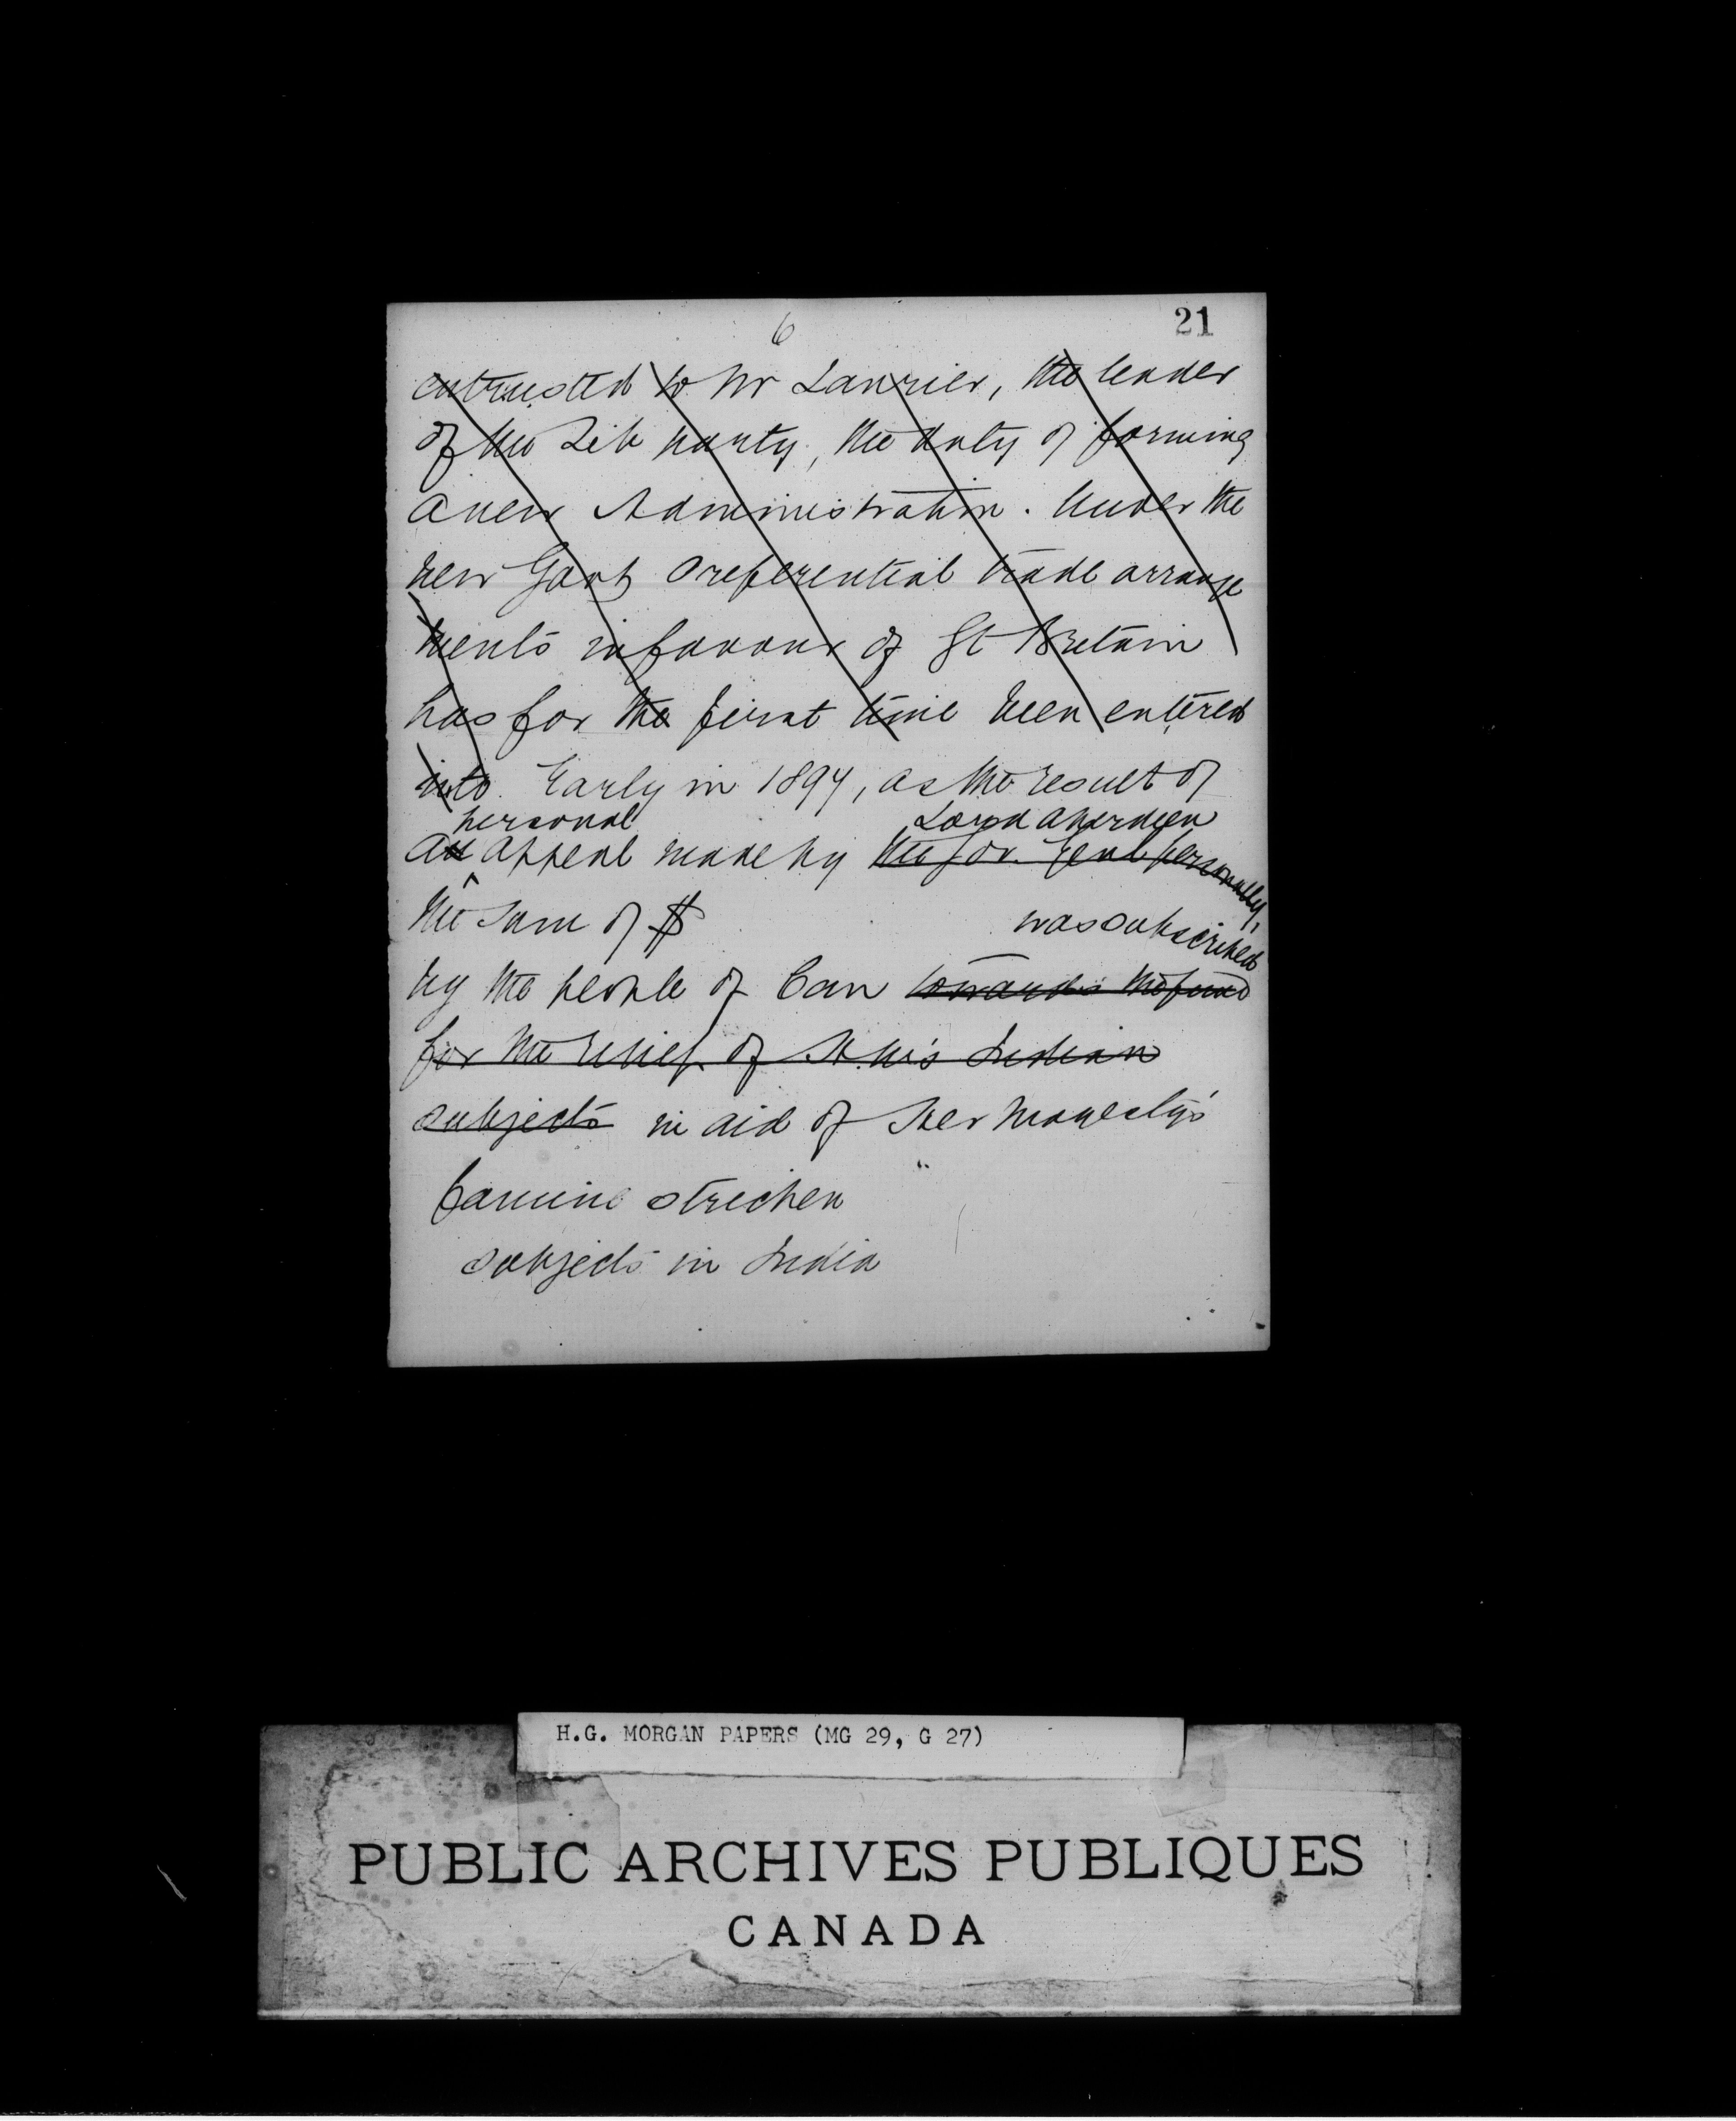 6
21
entrusted to Mr Laurier, the leader
of the Lib party, the duty of forming
a new Administration. Under the
new Govt preferential trade arrange
ments in favour of Gt Britain
has for the first time been entered
into. Early in 1897, as the result of
personal Lord Aberdeen
an appeal made by the Gov. Genl personally,
the sum of $ was subscribed
by the people of Can towards the fund
for the relief of H.M's Indian
subjects in aid of Her Majesty's
famine stricken
subjects in India
H.G. MORGAN PAPERS (MG 29, G 27)
PUBLIC ARCHIVES PUBLIQUES
CANADA